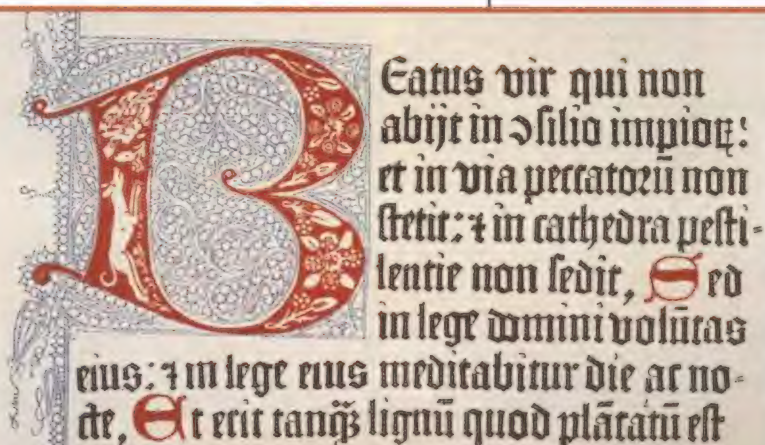 Beatus vir qui non
abijt in ↄsilio impioꝝ:
et in via peccatoꝛū non
stetit: ⁊ in cathedra pesti-
lentie non sedit, Sed
in lege domini volūtas
eius: ⁊ in lege eius meditabitur die ac no-
cte, Et erit tanqꝫ lignū quod plātatū est